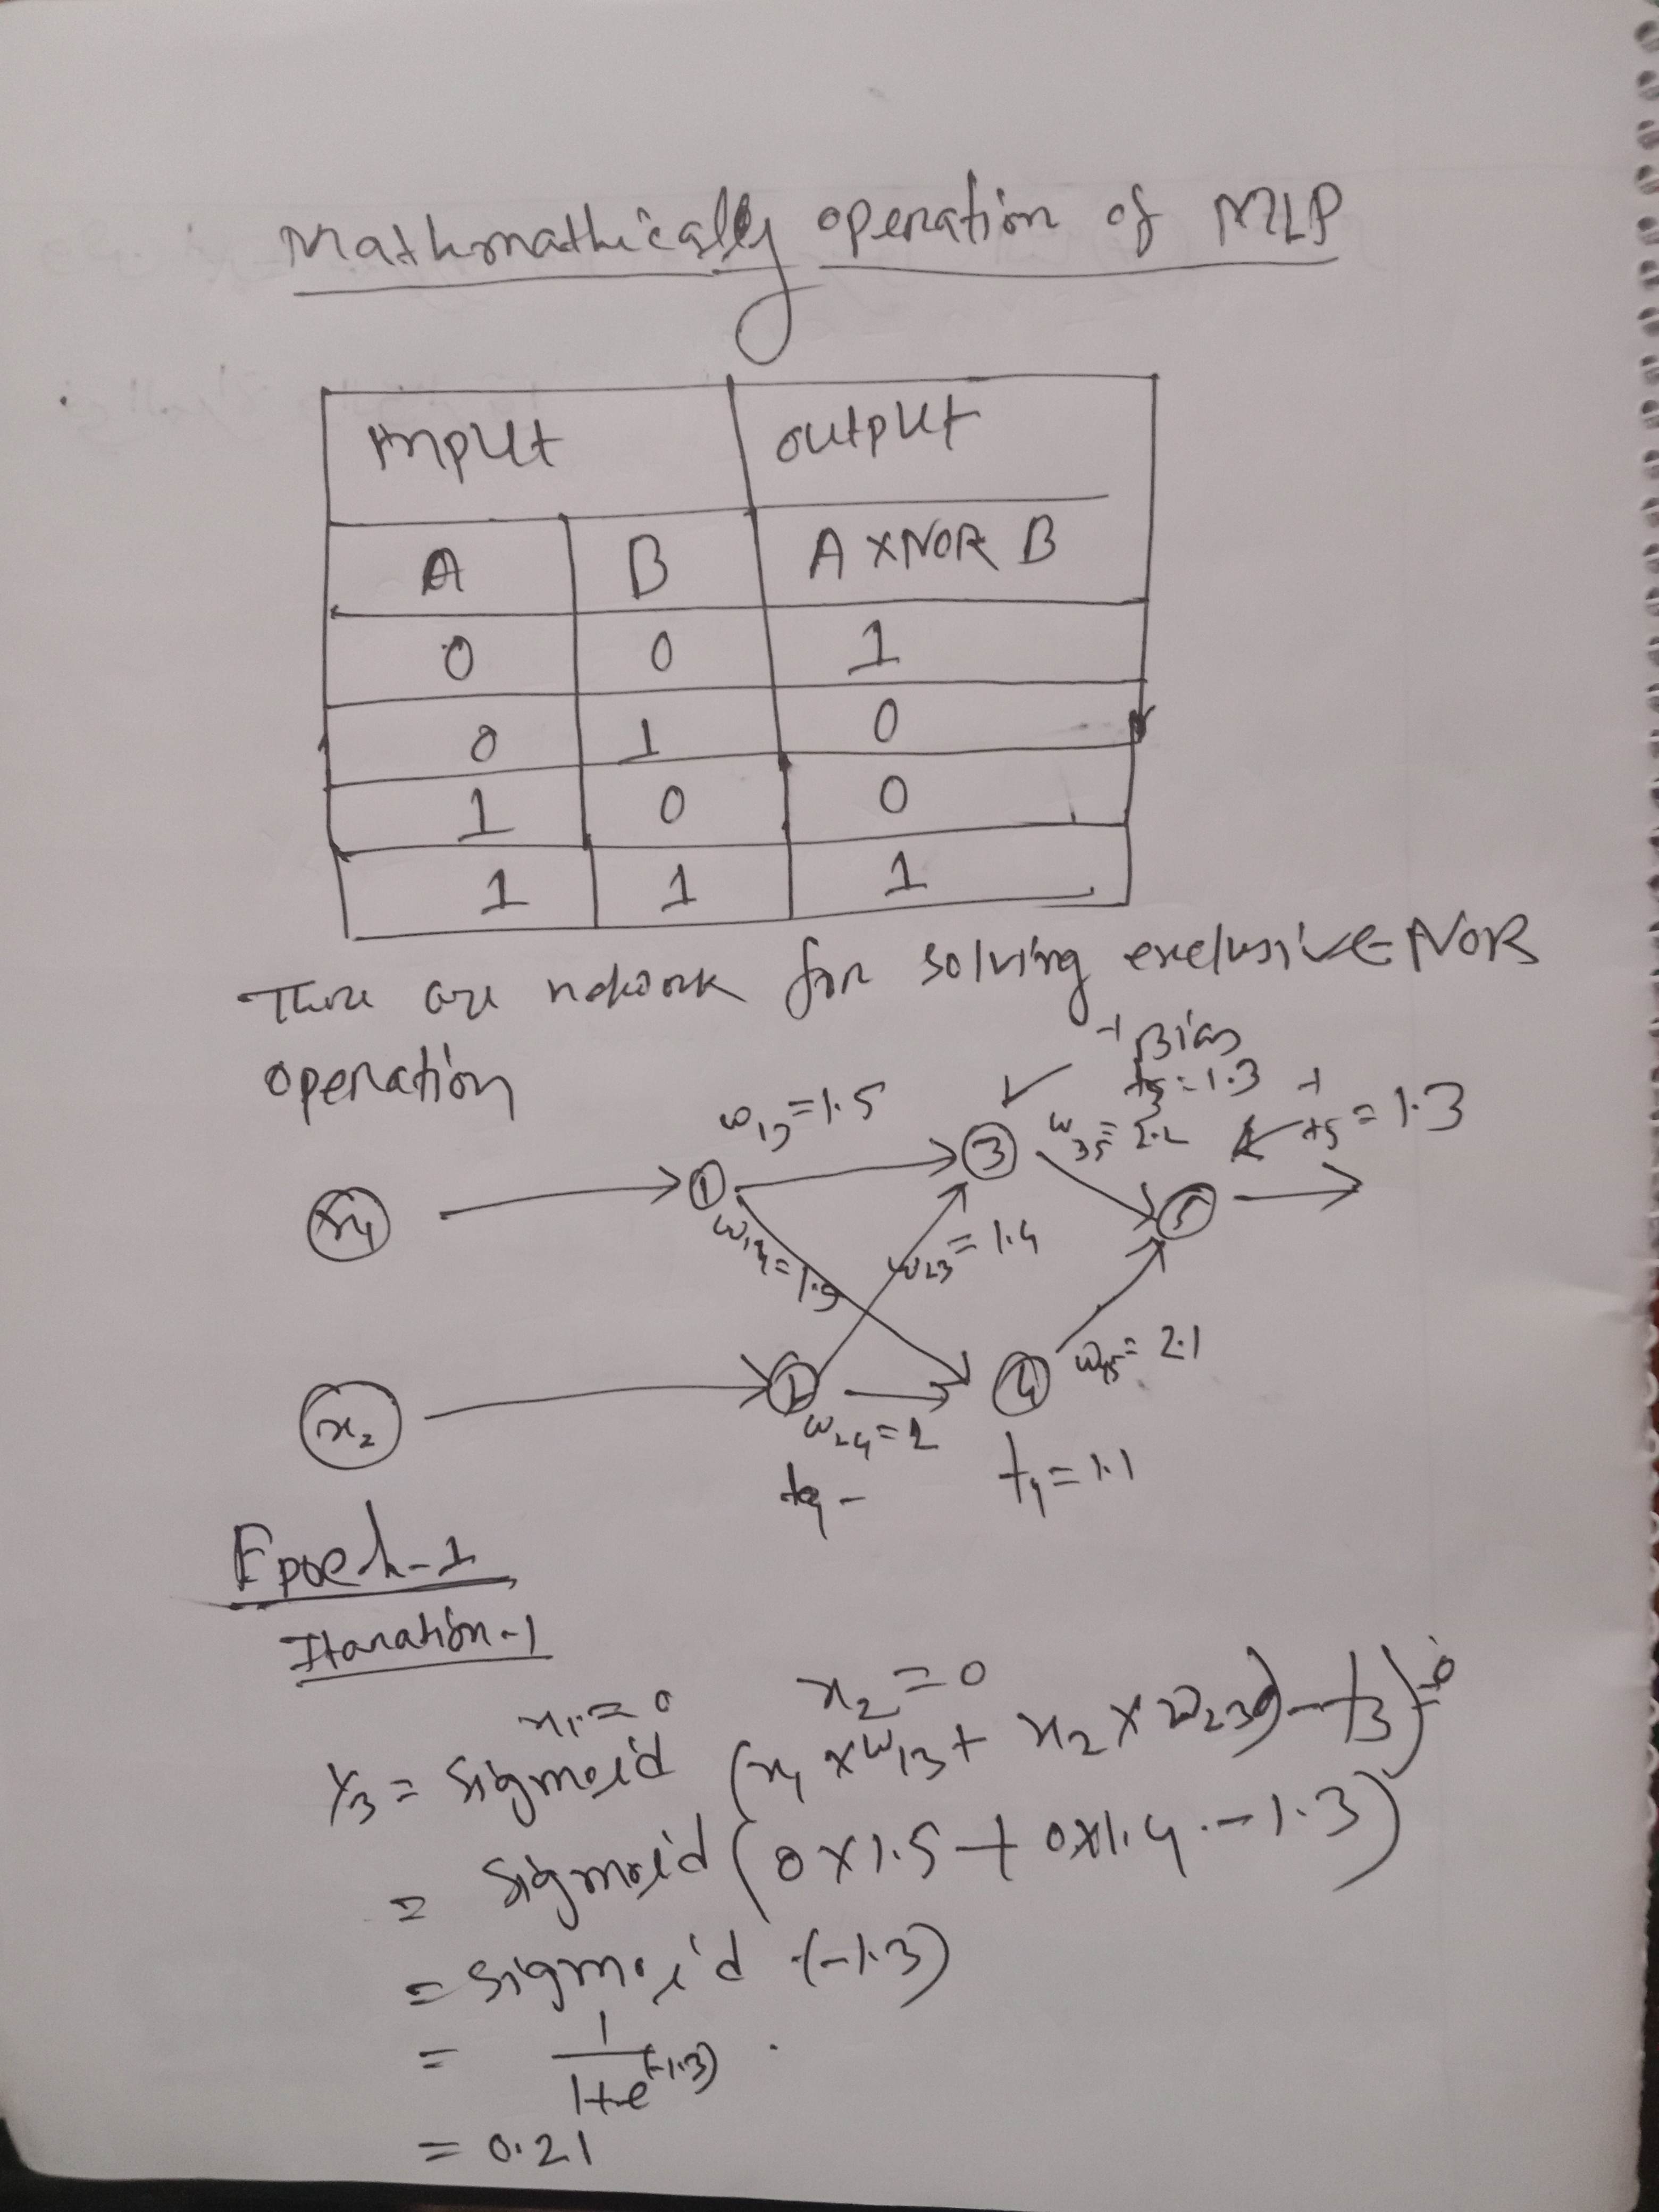 Mathmathically operation of MLP
Input output
A B A XNOR B
0 0 1
0 1 0
1 0 0
1 1 1
There are network for solving exclusive-NOR
operation
-1 Bias
t3 = 1.3
-1
w13 = 1.5
w35 = 2.2
t5 = 1.3
x1 1 3 5
w14 =
w23 = 1.4
x2 2 4
w45 = 2.1
w24 = 2
t4 -
t4 = 1.1
Epoch-1
Itaration-1
x1 = 0 x2 = 0
Y3 = Sigmoid (x1 x w13 + x2 x w23) - t3)
= Sigmoid (0x1.5 + 0x1.4 - 1.3)
= Sigmoid (-1.3)
= 1
1+e(-1.3)
= 0.21